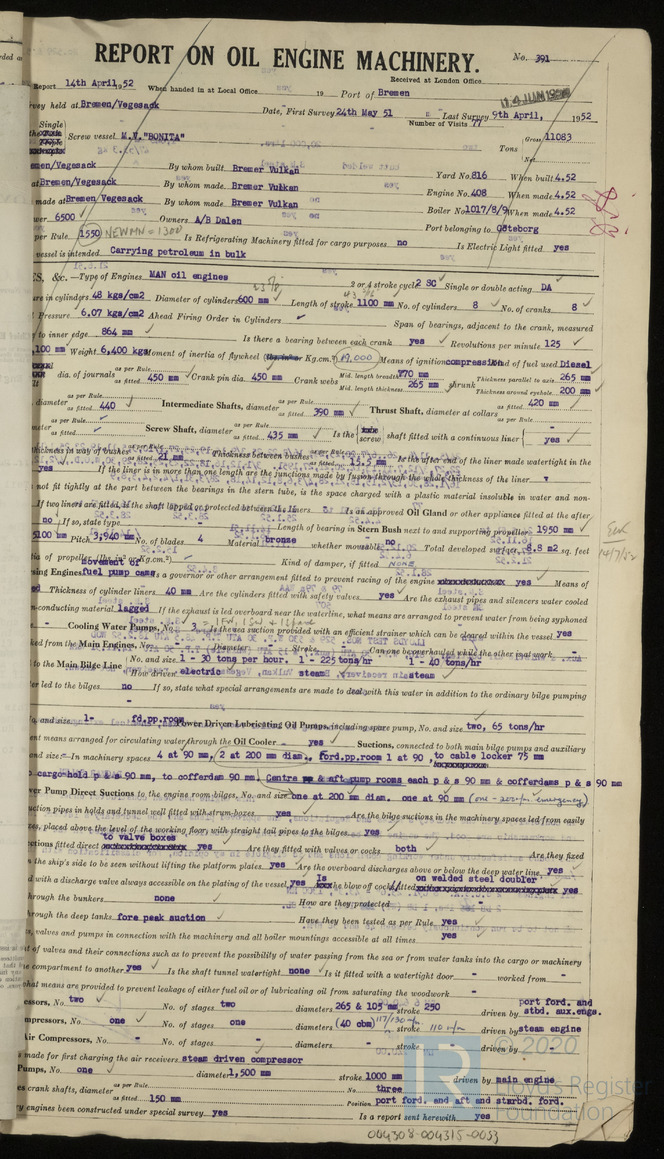 REPORT ON OIL ENGINE MACHINERY.
No. 391
Received at London Office
14 JUN 1952
Report 14th April, 1952 When handed in at Local Office 19 Port of Bremen
survey held at Bremen/Vegesack Date, First Survey 24th May 51 Last Survey 9th April, 1952
Number of Visits 77
Single
Screw vessel M.V. "BONITA" Tons Gross 11083
Net
Bremen/Vegesack By whom built Bremer Vulkan Yard No. 816 When built 4.52
at Bremen/Vegesack By whom made Bremer Vulkan Engine No. 408 When made 4.52
made at Bremen Vegesack By whom made Bremer Vulkan Boiler No. 1017/8/9 When made 4.52
6500 Owners A/B Dalen Port belonging to Göteborg
per Rule 1550 NEW MN = 1300 Is Refrigerating Machinery fitted for cargo purposes no Is Electric Light fitted yes
vessel is intended Carrying petroleum in bulk
ES, &c.—Type of Engines MAN oil engines 2 or 4 stroke cycle 2 SC Single or double acting DA
in cylinders 48 kgs/cm2 Diameter of cylinders 600 mm Length of stroke 1100 mm No. of cylinders 8 No. of cranks 8
Pressure 6,07 kgs/cm2 Ahead Firing Order in Cylinders Span of bearings, adjacent to the crank, measured
to inner edge 864 mm Is there a bearing between each crank yes Revolutions per minute 125
100 mm Weight 6,400 kg Moment of inertia of flywheel Kg.cm.² 19,000 Means of ignition compression Kind of fuel used Diesel
dia. of journals as per Rule as fitted 450 mm Crank pin dia. 450 mm Crank webs Mid. length breadth 770 mm Mid. length thickness 265 mm shrunk Thickness parallel to axis 265 mm Thickness around eyehole 200 mm
diameter as per Rule as fitted 440 Intermediate Shafts, diameter as per Rule as fitted 390 mm Thrust Shaft, diameter at collars as per Rule as fitted 420 mm
Screw Shaft, diameter as per Rule as fitted 435 mm Is the screw shaft fitted with a continuous liner yes
thickness in way of bushes as per Rule as fitted 21 mm Thickness between bushes as per Rule as fitted 15.5 mm Is the after end of the liner made watertight in the
yes If the liner is in more than one length are the junctions made by fusion through the whole thickness of the liner
not fit tightly at the part between the bearings in the stern tube, is the space charged with a plastic material insoluble in water and non-
If two liners are fitted, is the shaft lapped or protected between the liners Is an approved Oil Gland or other appliance fitted at the after
no If so, state type Length of bearing in Stern Bush next to and supporting propeller 1950 mm
5100 Pitch 3,940 mm No. of blades 4 Material bronze whether moveable no Total developed surface 8.8 m2 sq. feet
of propeller (lbs in² or Kg.cm.²) Kind of damper, if fitted NONE
movement of
ing Engines fuel pump cams Is a governor or other arrangement fitted to prevent racing of the engine yes Means of
Thickness of cylinder liners 40 mm Are the cylinders fitted with safety valves yes Are the exhaust pipes and silencers water cooled
non-conducting material lagged If the exhaust is led overboard near the waterline, what means are arranged to prevent water from being syphoned
Cooling Water Pumps, No. 3 Is the sea suction provided with an efficient strainer which can be cleared within the vessel yes
ked from the Main Engines, No. Diameter Stroke Can one be overhauled while the other is at work
to the Main Bilge Line No. and size 1 - 30 tons per hour. 1 - 225 tons/hr 1 - 40 tons/hr
How driven electric steam steam
er led to the bilges no If so, state what special arrangements are made to deal with this water in addition to the ordinary bilge pumping
No. and size 1- fd.pp.room Power Driven Lubricating Oil Pumps, including spare pump, No. and size two, 65 tons/hr
ent means arranged for circulating water through the Oil Cooler yes Suctions, connected to both main bilge pumps and auxiliary
and size:—In machinery spaces 4 at 90 mm, 2 at 200 mm diam., ford.pp.room 1 at 90, to cable locker 75 mm
cargo hold p & s 90 mm, to cofferdam 90 mm. Centre & aft pump rooms each p & s 90 mm & cofferdams p & s 90 mm
wer Pump Direct Suctions to the engine room bilges, No. and size one at 200 mm diam. one at 90 mm (one - 200 m/m emergency)
suction pipes in holds and tunnel well fitted with strum-boxes yes Are the bilge suctions in the machinery spaces led from easily
es, placed above the level of the working floor, with straight tail pipes to the bilges yes
to valve boxes
ctions fitted direct yes Are they fitted with valves or cocks both Are they fixed
the ship's side to be seen without lifting the platform plates yes Are the overboard discharges above or below the deep water line yes
d with a discharge valve always accessible on the plating of the vessel yes Is the blow off cock fitted on welded steel doubler yes
hrough the bunkers none How are they protected -
hrough the deep tanks fore peak suction Have they been tested as per Rule yes
s, valves and pumps in connection with the machinery and all boiler mountings accessible at all times yes
t of valves and their connections such as to prevent the possibility of water passing from the sea or from water tanks into the cargo or machinery
e compartment to another yes Is the shaft tunnel watertight none Is it fitted with a watertight door - worked from -
what means are provided to prevent leakage of either fuel oil or of lubricating oil from saturating the woodwork -
essors, No. two No. of stages two diameters 265 & 105 mm stroke 250 driven by port ford. and stbd. aux.engs.
mpressors, No. one No. of stages one diameters (40 cbm) 117/130 m/m stroke 110 m/m driven by steam engine
Air Compressors, No. - No. of stages - diameters - stroke - driven by -
is made for first charging the air receivers steam driven compressor
Pumps, No. one diameter 1,500 mm stroke 1000 mm driven by main engine
es crank shafts, diameter as per Rule as fitted 150 mm No. three Position port ford. and aft and starbd. ford.
ry engines been constructed under special survey yes Is a report sent herewith yes
© 2020
LR
Lloyd's Register
Foundation
004308-004315-0053